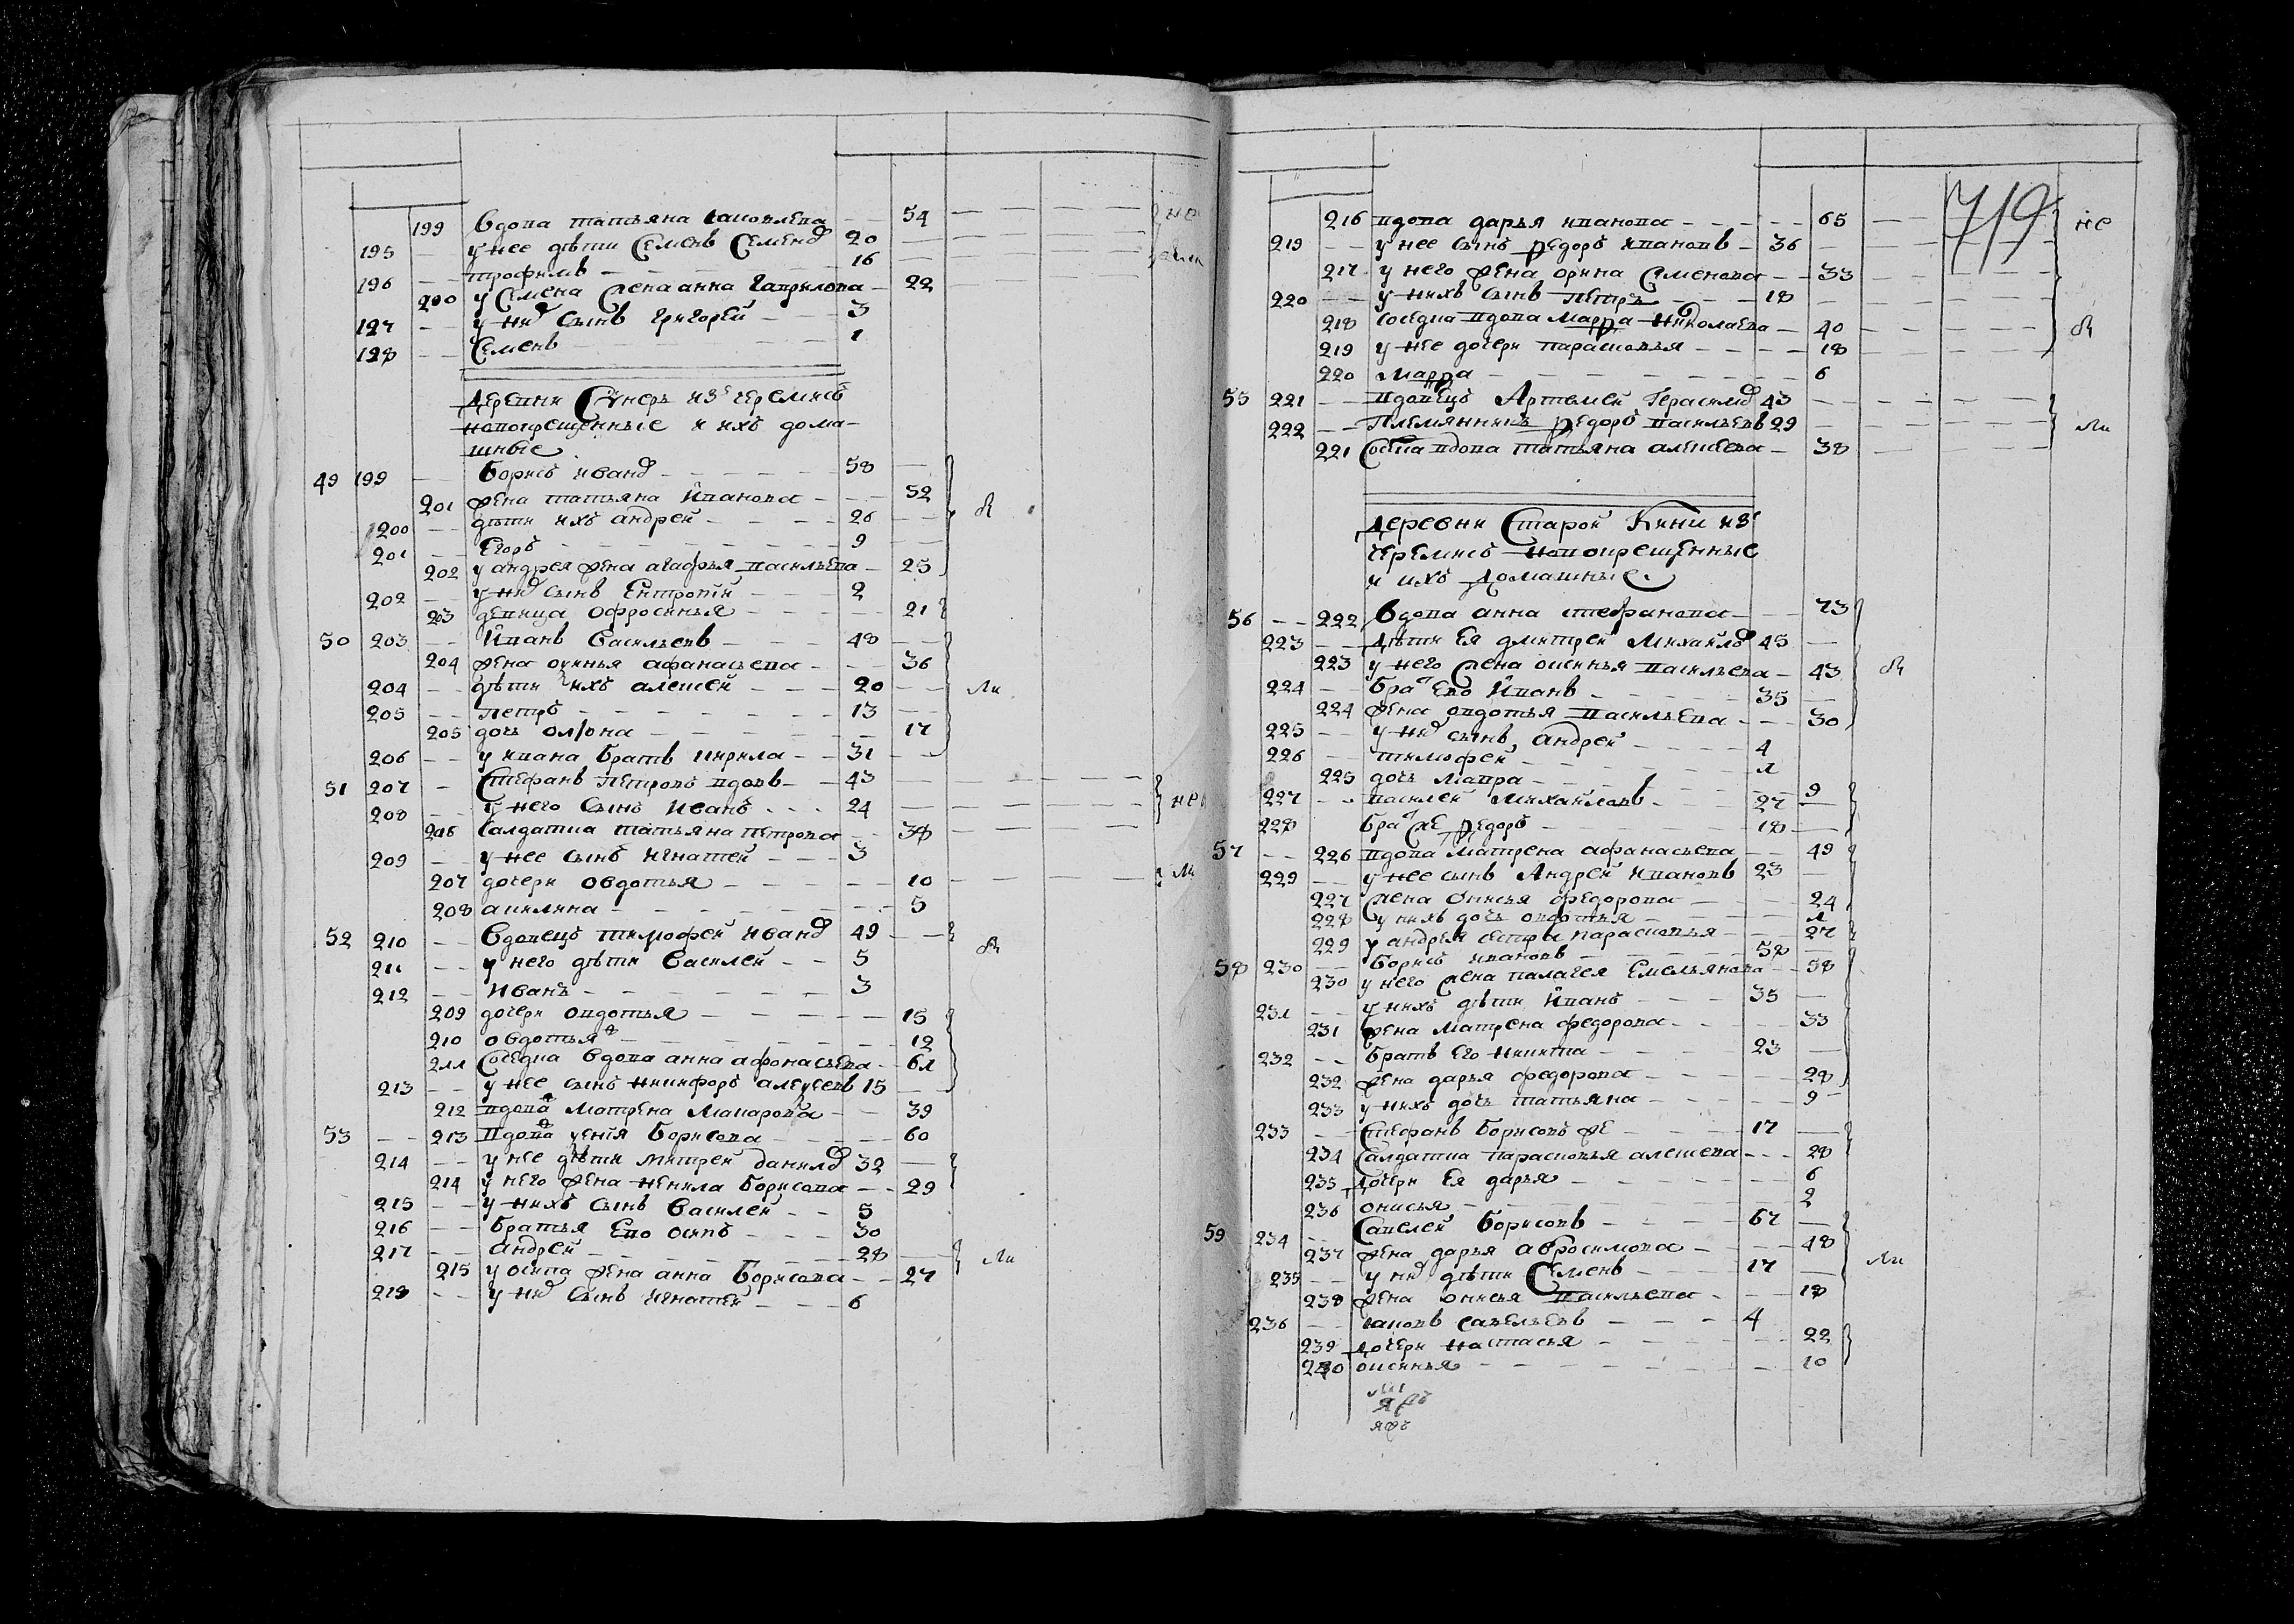 199 вдова татьяна 54 не
195 у нее дѣти Семенъ Семенов 20
196 трофимъ 16
200 у Семена жена анна гаврилова 22
197 у них сынъ григорей 3
198 Семенъ 1
деревни из черемисъ
новокрещенные и ихъ дома-
шные
49 199 борисъ иванов 58
201 жена татьяна иванова 52
200 дѣти ихъ андрей 26
201 Егоръ 9
202 у андрея жена агафья васильева 25
202 у них сынъ Евтропiи 2
203 девица офросинья 21
50 203 иванъ васильевъ 48
204 жена оксинья афанасьева 36
204 дѣти ихъ алексей 20
205 петръ 13
205 дочь 17
206 у ивана братъ кирила 31
51 207 Стефанъ петровъ вдовъ 43
208 у него сынъ иванъ 24
206 салдатка татьяна петрова 38
209 у нее сынъ игнатей 3
207 дочери овдотья 10
208 акилина 5
52 210 вдовецъ тимофей иванов 49
211 у него дѣти василей 5
212 иванъ 3
209 дочери овдотья 15
210 овдотья 12
211 соседка вдова анна афонасьева 61
213 у нее сынъ никифоръ алексеевъ 15
212 вдова матрена макарова 39
53 213 вдова борисова 60
214 у нее дѣти митрей данилов 32
214 у него жена ненила борисова 29
215 у нихъ сынъ василей 5
216 братья Ево осипъ 30
217 андрей 28
215 у осипа жена анна борисова 27
218 у них сынъ игнатей 6
719
216 вдова дарья иванова 65 не
219 у нее сынъ федоръ ивановъ 36
217 у него жена орина Семенова 33
220 у нихъ сынъ петръ 18
218 соседка вдова марфа николаева 40
219 у нее дочери парасковья 18
220 марфа 6
55 221 вдовецъ Артемей Герасимов 43
222 племянникъ федоръ васильевъ 29
221 вдова татьяна алексеева 38
деревни Старой Кини из
черемисъ новокрещенные
и ихъ домашные
56 222 вдова анна стефанова 73
223 дѣти ея дмитрей михайлов 45
223 у него жена оксинья васильева 43
224 бра Ево иванъ 35
224 жена овдотья васильева 30
225 у них сынъ андрей 4
226 тимофей 1
225 дочь мавра 9
227 василей михайловъ 27
228 бра же федоръ 18
57 226 вдова матрена афанасьева 49
229 у нее сынъ Андрей ивановъ 23
227 жена онисья федорова 24
228 у нихъ дочь овдотья 1
229 у андрея сестра парасковья 27
58 230 борисъ ивановъ 58
230 у него жена палагея Емельянова 58
231 у нихъ дѣти иванъ 35
231 жена матрена федорова 33
232 братъ его никита 23
232 жена дарья федорова 28
233 у нихъ дочь татьяна 9
233 Стефанъ борисовъ же 17
234 салдатка парасковья алексеева 28
235 дочери Ея дарья 6
236 онисья 2
59 234 Савелей борисовъ 67
237 жена дарья абросимова 48
235 у них дѣти Семенъ 17
238 жена онисья васильева 18
236 яковъ савельевъ 4
239 дочери настасья 22
240 оксинья 10